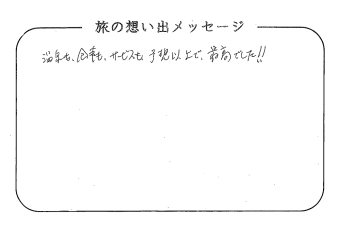 旅の想い出メッセージ
温泉も、食事も、サービスも、予想以上で、最高でした!!